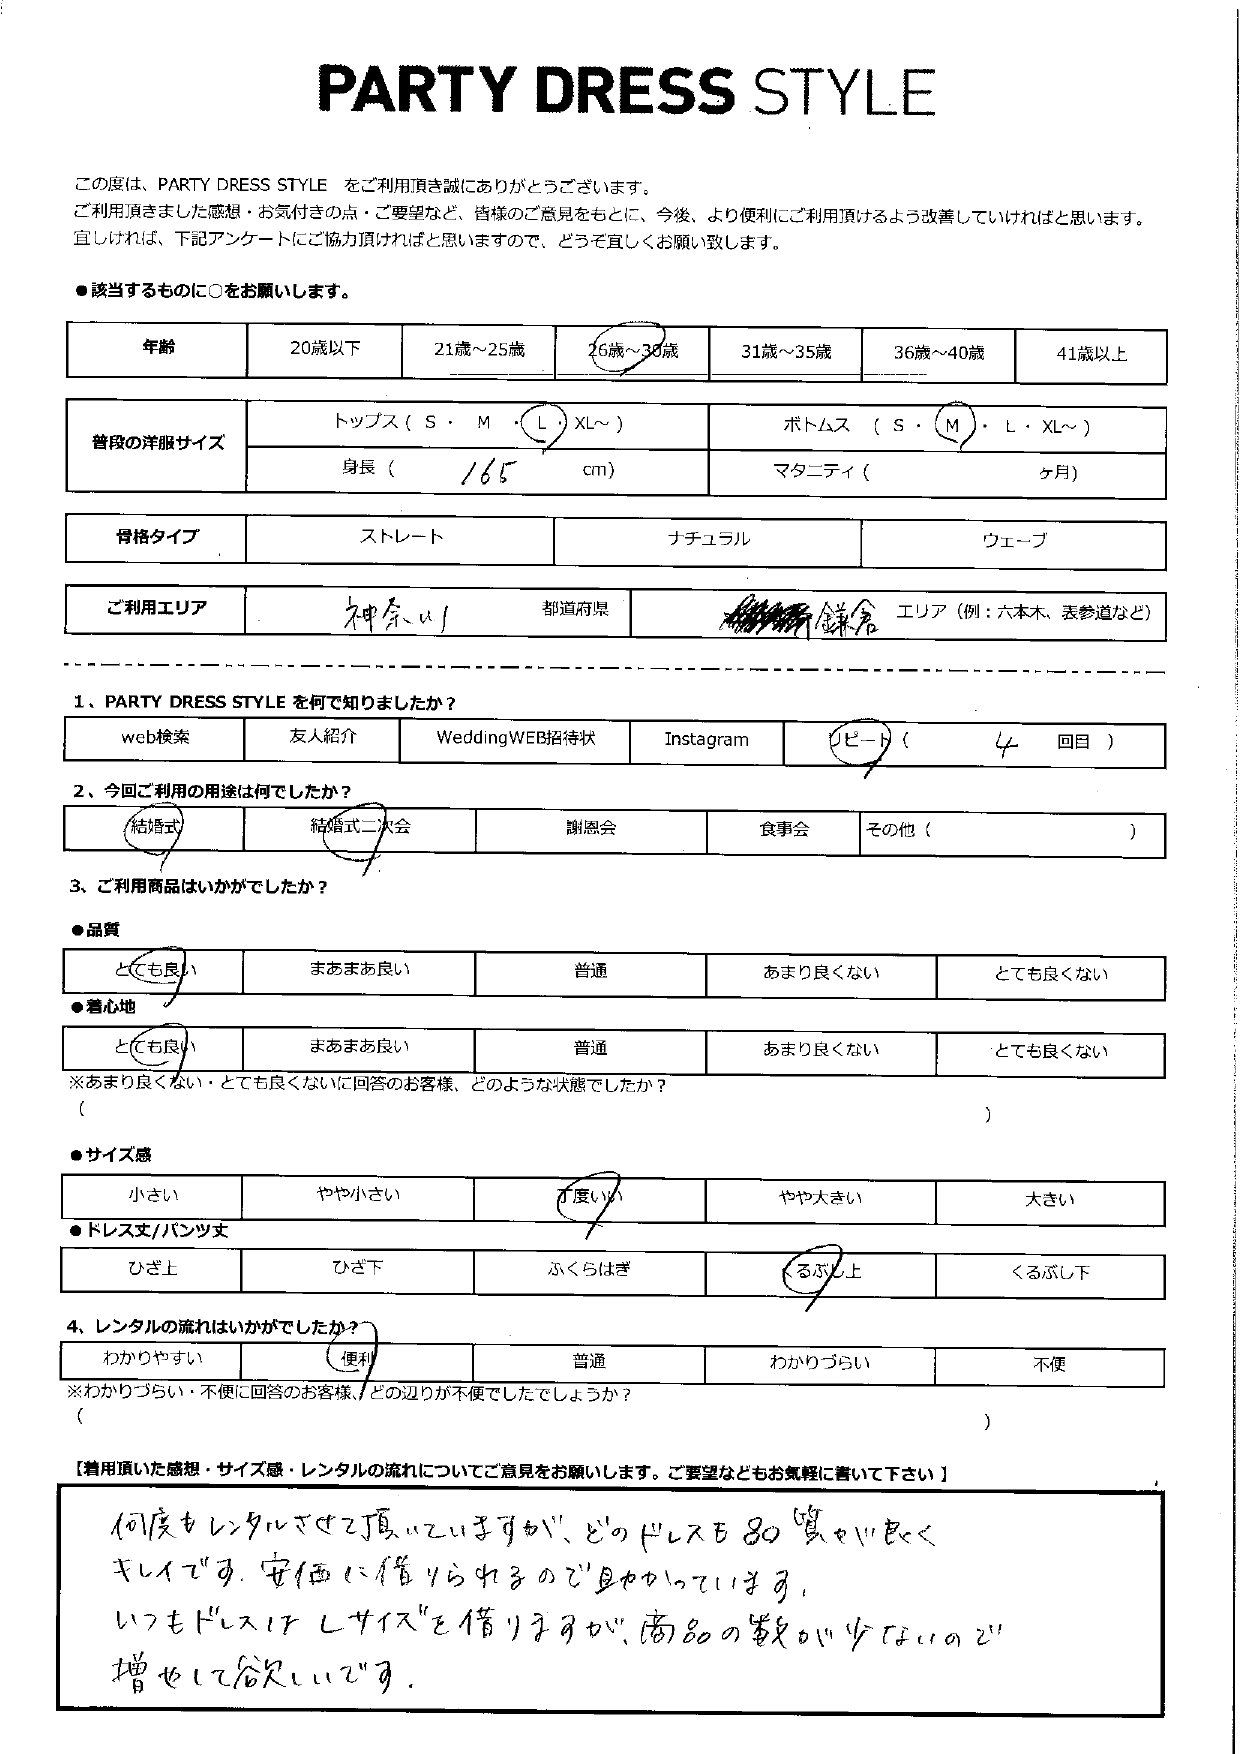 PARTY DRESS STYLE
この度は、PARTY DRESS STYLE をご利用頂き誠にありがとうございます。
ご利用頂きました感想・お気付きの点・ご要望など、皆様のご意見をもとに、今後、より便利にご利用頂けるよう改善していければと思います。
宜しければ、下記アンケートにご協力頂ければと思いますので、どうぞ宜しくお願い致します。
●該当するものに○をお願いします。
年齢 20歳以下 21歳～25歳 26歳～30歳 31歳～35歳 36歳～40歳 41歳以上
普段の洋服サイズ トップス ( S ・ M ・ L ・ XL～ ) ボトムス ( S ・ M ・ L ・ XL～ )
身長 ( 165 cm) マタニティ ( ヶ月)
骨格タイプ ストレート ナチュラル ウェーブ
ご利用エリア 神奈川 都道府県 鎌倉 エリア（例：六本木、表参道など）
1、PARTY DRESS STYLE を何で知りましたか？
web検索 友人紹介 WeddingWEB招待状 Instagram リピート ( 4 回目 )
2、今回ご利用の用途は何でしたか？
結婚式 結婚式二次会 謝恩会 食事会 その他 ( )
3、ご利用商品はいかがでしたか？
●品質
とても良い まあまあ良い 普通 あまり良くない とても良くない
●着心地
とても良い まあまあ良い 普通 あまり良くない とても良くない
※あまり良くない・とても良くないに回答のお客様、どのような状態でしたか？
( )
●サイズ感
小さい やや小さい 丁度いい やや大きい 大きい
●ドレス丈/パンツ丈
ひざ上 ひざ下 ふくらはぎ くるぶし上 くるぶし下
4、レンタルの流れはいかがでしたか？
わかりやすい 便利 普通 わかりづらい 不便
※わかりづらい・不便に回答のお客様、どの辺りが不便でしたでしょうか？
( )
【着用頂いた感想・サイズ感・レンタルの流れについてご意見をお願いします。ご要望などもお気軽に書いて下さい】
何度もレンタルさせて頂いていますが、どのドレスも品質が良く
キレイです。安価に借りられるので助かっています。
いつもドレスはLサイズを借りますが、商品の数が少ないので
増やして欲しいです。